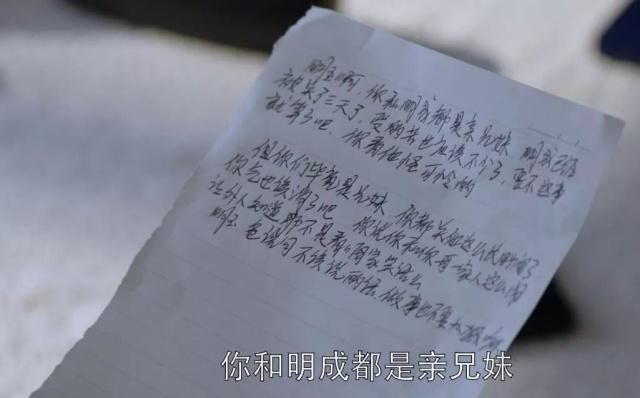 明玉啊，你和明成都是亲兄妹 明成已经
被关了三天了，受的苦也应该不少了，要不这事
就算了吧，你看他怪可怜的
但你们毕竟是兄妹 你都关他这么长时间了
你气也该消了吧 你说你和你哥一家人这么闹
让外人知道 那不是看咱家笑话么
明玉 爸说句不该说的话 做事也不要太
你和明成都是亲兄妹